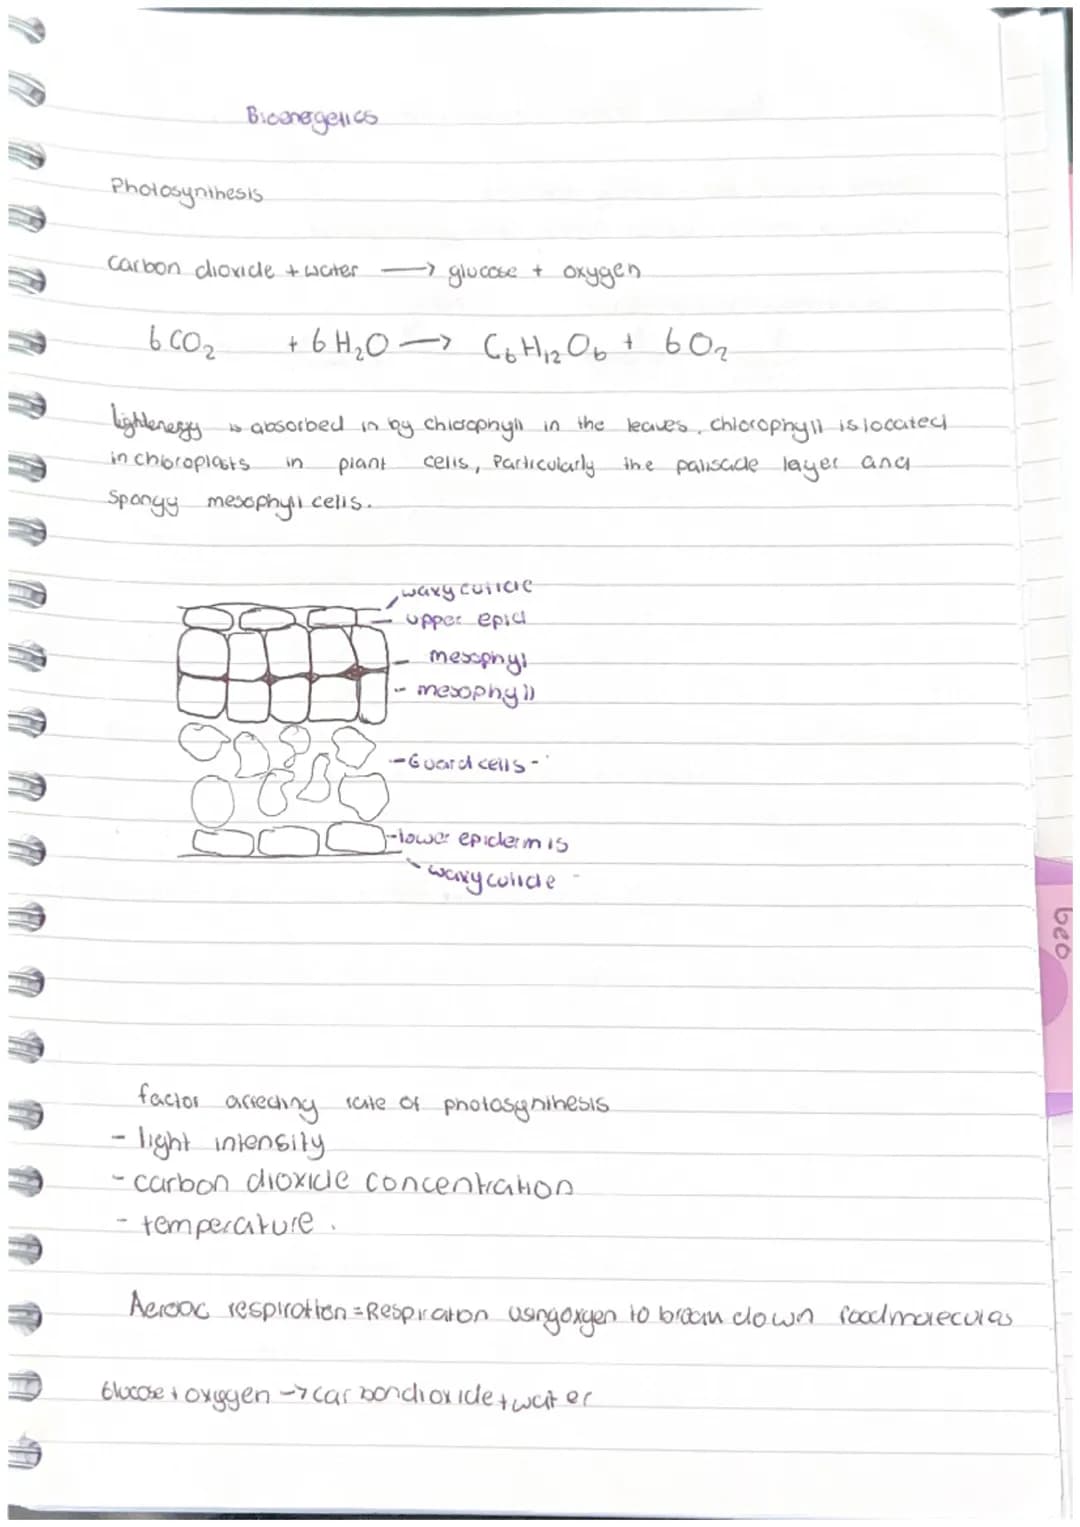 Bioenergetics
Photosynthesis
Carbon dioxide + water → glucose + oxygen
6 CO₂ + 6 H₂O → C₆H₁₂O₆ + 6O₂
lightenergy is absorbed in by chlorophyll in the leaves. Chlorophyll is located
in chloroplasts in plant cells, Particularly the palisade layer and
Spongy mesophyll cells.
waxy cuticle
upper epid
mesophyl
- mesophyll
- Guard cells -
- lower epidermis
- waxy cuticle
factor affecting rate of photosynthesis
- light intensity
- carbon dioxide concentration
- temperature.
respiration = Respiration using oxygen to down food molecules
Glucose + oxygen → carbon dioxide + water
Geo